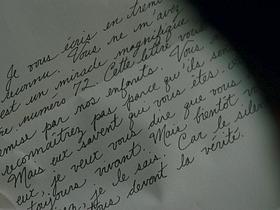 Je vous écris en trem
reconnu. Vous ne m'avez
est un miracle magnifique
numéro 72. Cette lettre vous
remise par nos enfants. Vous
reconnaîtrez pas parce qu'ils sont
Mais eux savent que vous êtes
eux, je veux vous dire que vous
toujours vivant. Mais bientôt vous
je le sais. Car le silen
devant la vérité.